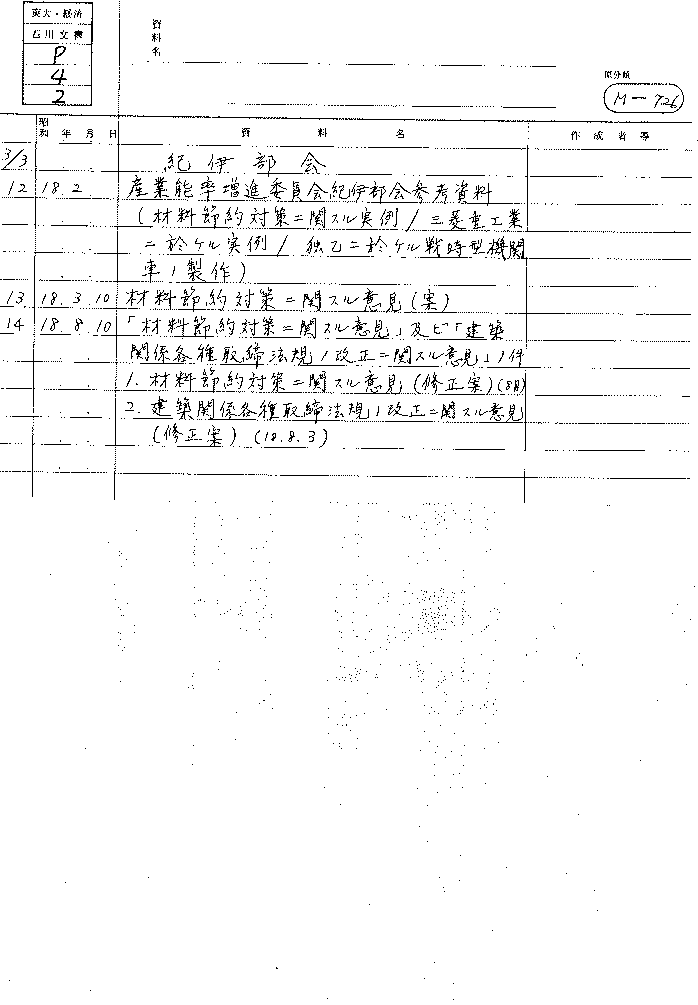 東大・経済
石川文書
P
4
2
資料名
原分類
M-726
昭和 年 月 日 資料名 作成者等
3/3 紀伊部会
12 18.2. 産業能率増進委員会紀伊部会参考資料
(材料節約対策ニ関スル実例/三菱重工業
ニ於ケル実例/独乙ニ於ケル戦時型機関
車ノ製作)
13. 18.3.10 材料節約対策ニ関スル意見(案)
14 18.8.10 「材料節約対策ニ関スル意見」及ビ「建築
関係各種取締法規ノ改正ニ関スル意見」ノ件
1. 材料節約対策ニ関スル意見(修正案)(8月)
2. 建築関係各種取締法規ノ改正ニ関スル意見
(修正案)(18.8.3)